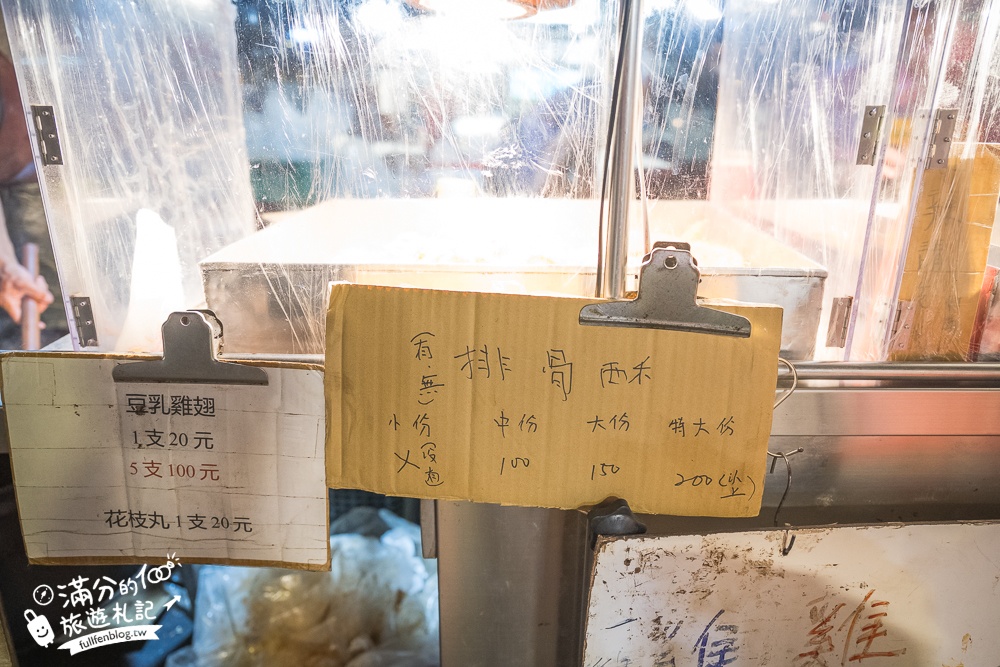 豆乳雞翅
1支20元
5支100元
花枝丸 1支20元
(有.無) 排骨酥
小份 中份 大份 特大份
X(沒有) 100 150 200(坐)
滿分的100
旅遊札記
fullfenblog.tw
雞 雞